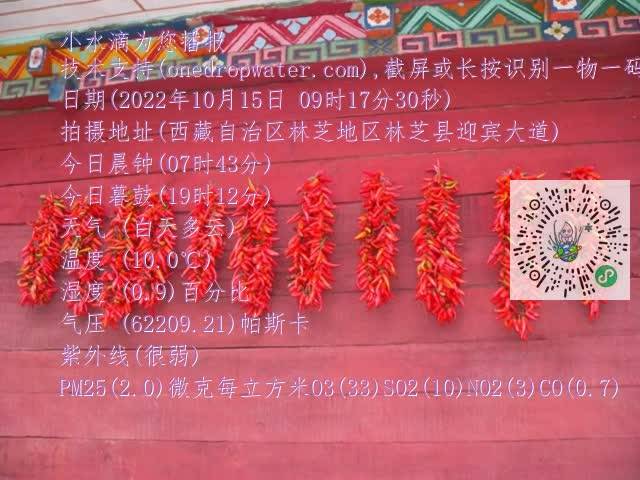 小水滴为您播报
技术支持(onedropwater.com),截屏或长按识别一物一码
日期(2022年10月15日 09时17分30秒)
拍摄地址(西藏自治区林芝地区林芝县迎宾大道)
今日晨钟(07时43分)
今日暮鼓(19时12分)
天气 (白天多云)
温度 (10.0℃)
湿度 (0.9)百分比
气压 (62209.21)帕斯卡
紫外线(很弱)
PM25(2.0)微克每立方米O3(33)SO2(10)NO2(3)CO(0.7)